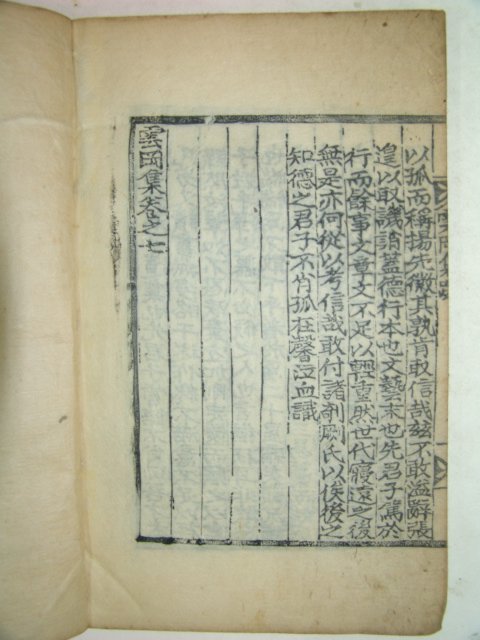 以孤而稱揚先徽其孰肯取信哉玆不敢溢辭張
皇以取譏誚盖德行本也文藝末也先君子篤於
行而餘事文章文不足以輕重然世代寢遠之後
無是亦何從以考信哉敢付諸剞劂氏以俟後之
知德之君子不肖孤在馨泣血識
雲岡集卷之七